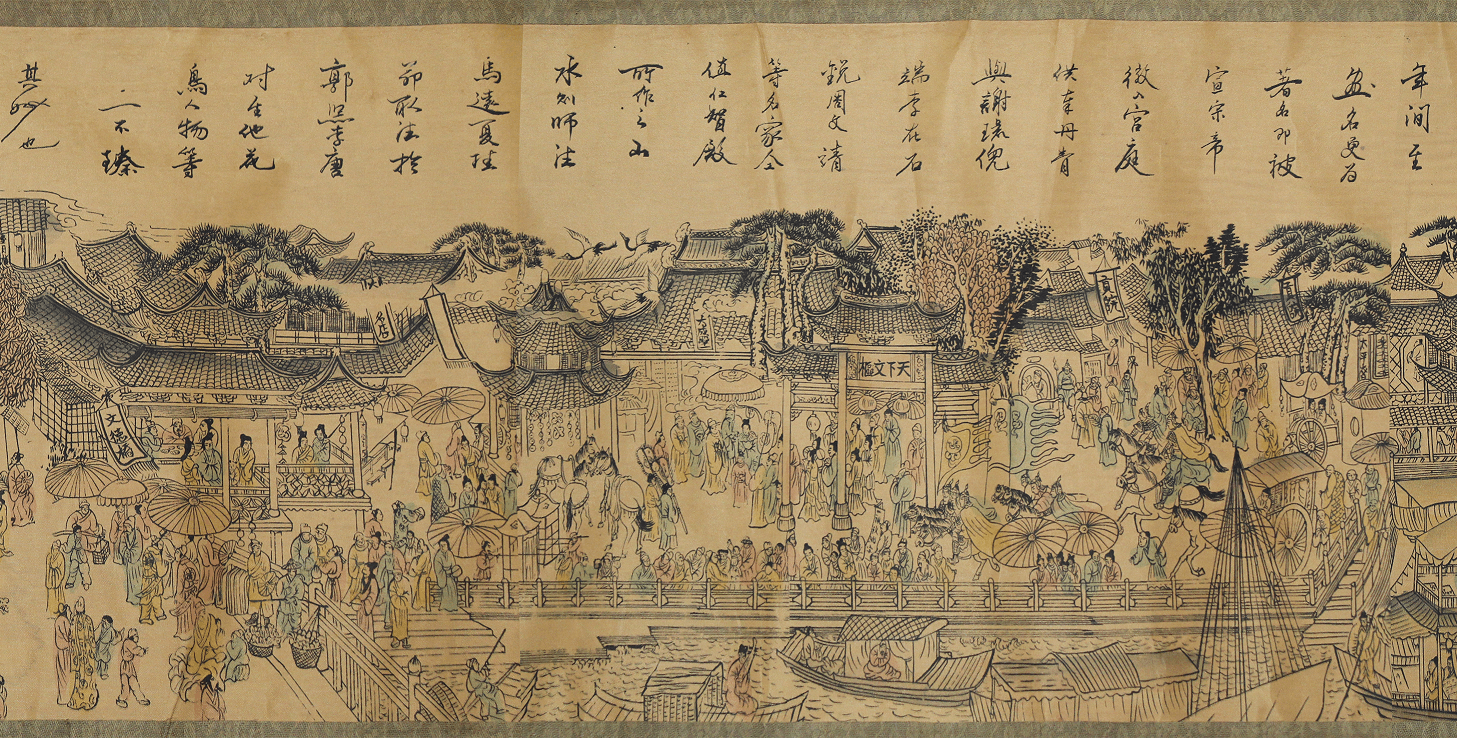 年间至
画名更为
著名即被
宣宗帝
徵入宫庭
供奉丹青
與謝環倪
端李在石
銳周文靖
等名家仝
值仁智殿
所作之山
水则師法
馬遠夏珪
取法於
郭熙李唐
对其他花
鳥人物等
不臻
其妙也
天下文樞
文德橋